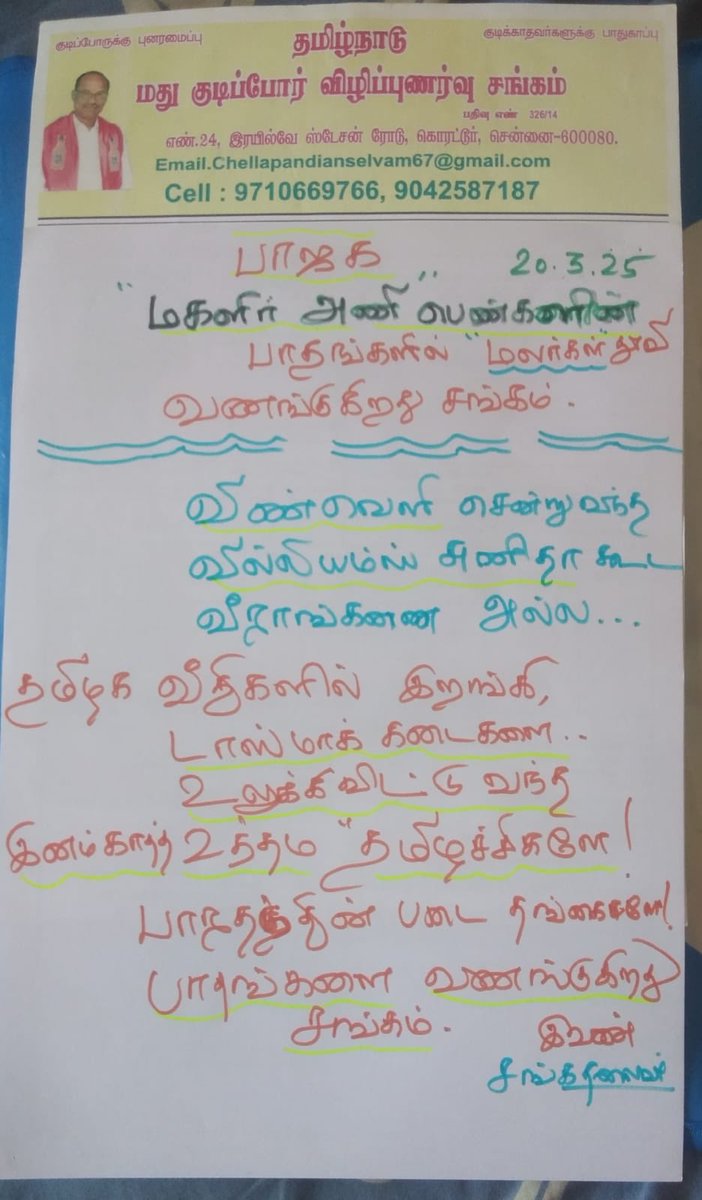 குடிப்போருக்கு புனரமைப்பு
தமிழ்நாடு
குடிக்காதவர்களுக்கு பாதுகாப்பு
மது குடிப்போர் விழிப்புணர்வு சங்கம்
பதிவு எண் 326/14
எண்.24, இரயில்வே ஸ்டேசன் ரோடு, கொரட்டூர், சென்னை-600080.
Email.Chellapandianselvam67@gmail.com
Cell : 9710669766, 9042587187
பாஜக
20.3.25
"மகளிர் அணி" பெண்களின்
பாதங்களில் "மலர்கள்" தூவி
வணங்குகிறது சங்கம்.
விண்வெளி சென்று வந்த
வில்லியம்ஸ் சுனிதா கூட
வீராங்கனை அல்ல...
தமிழக வீதிகளில் இறங்கி,
டாஸ்மாக் கடைகளை..
உலுக்கிவிட்டு வந்த
இனம்காத்த உத்தம "தமிழச்சிகளே!
பாரதத்தின் படை தங்கைகளே!
பாதங்களை வணங்குகிறது
சங்கம்.
இவண்
சங்கதலைவர்